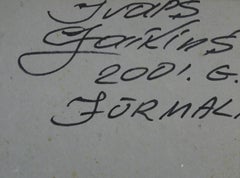 Ivars
Gaikins
2001. G.
JŪRMAL